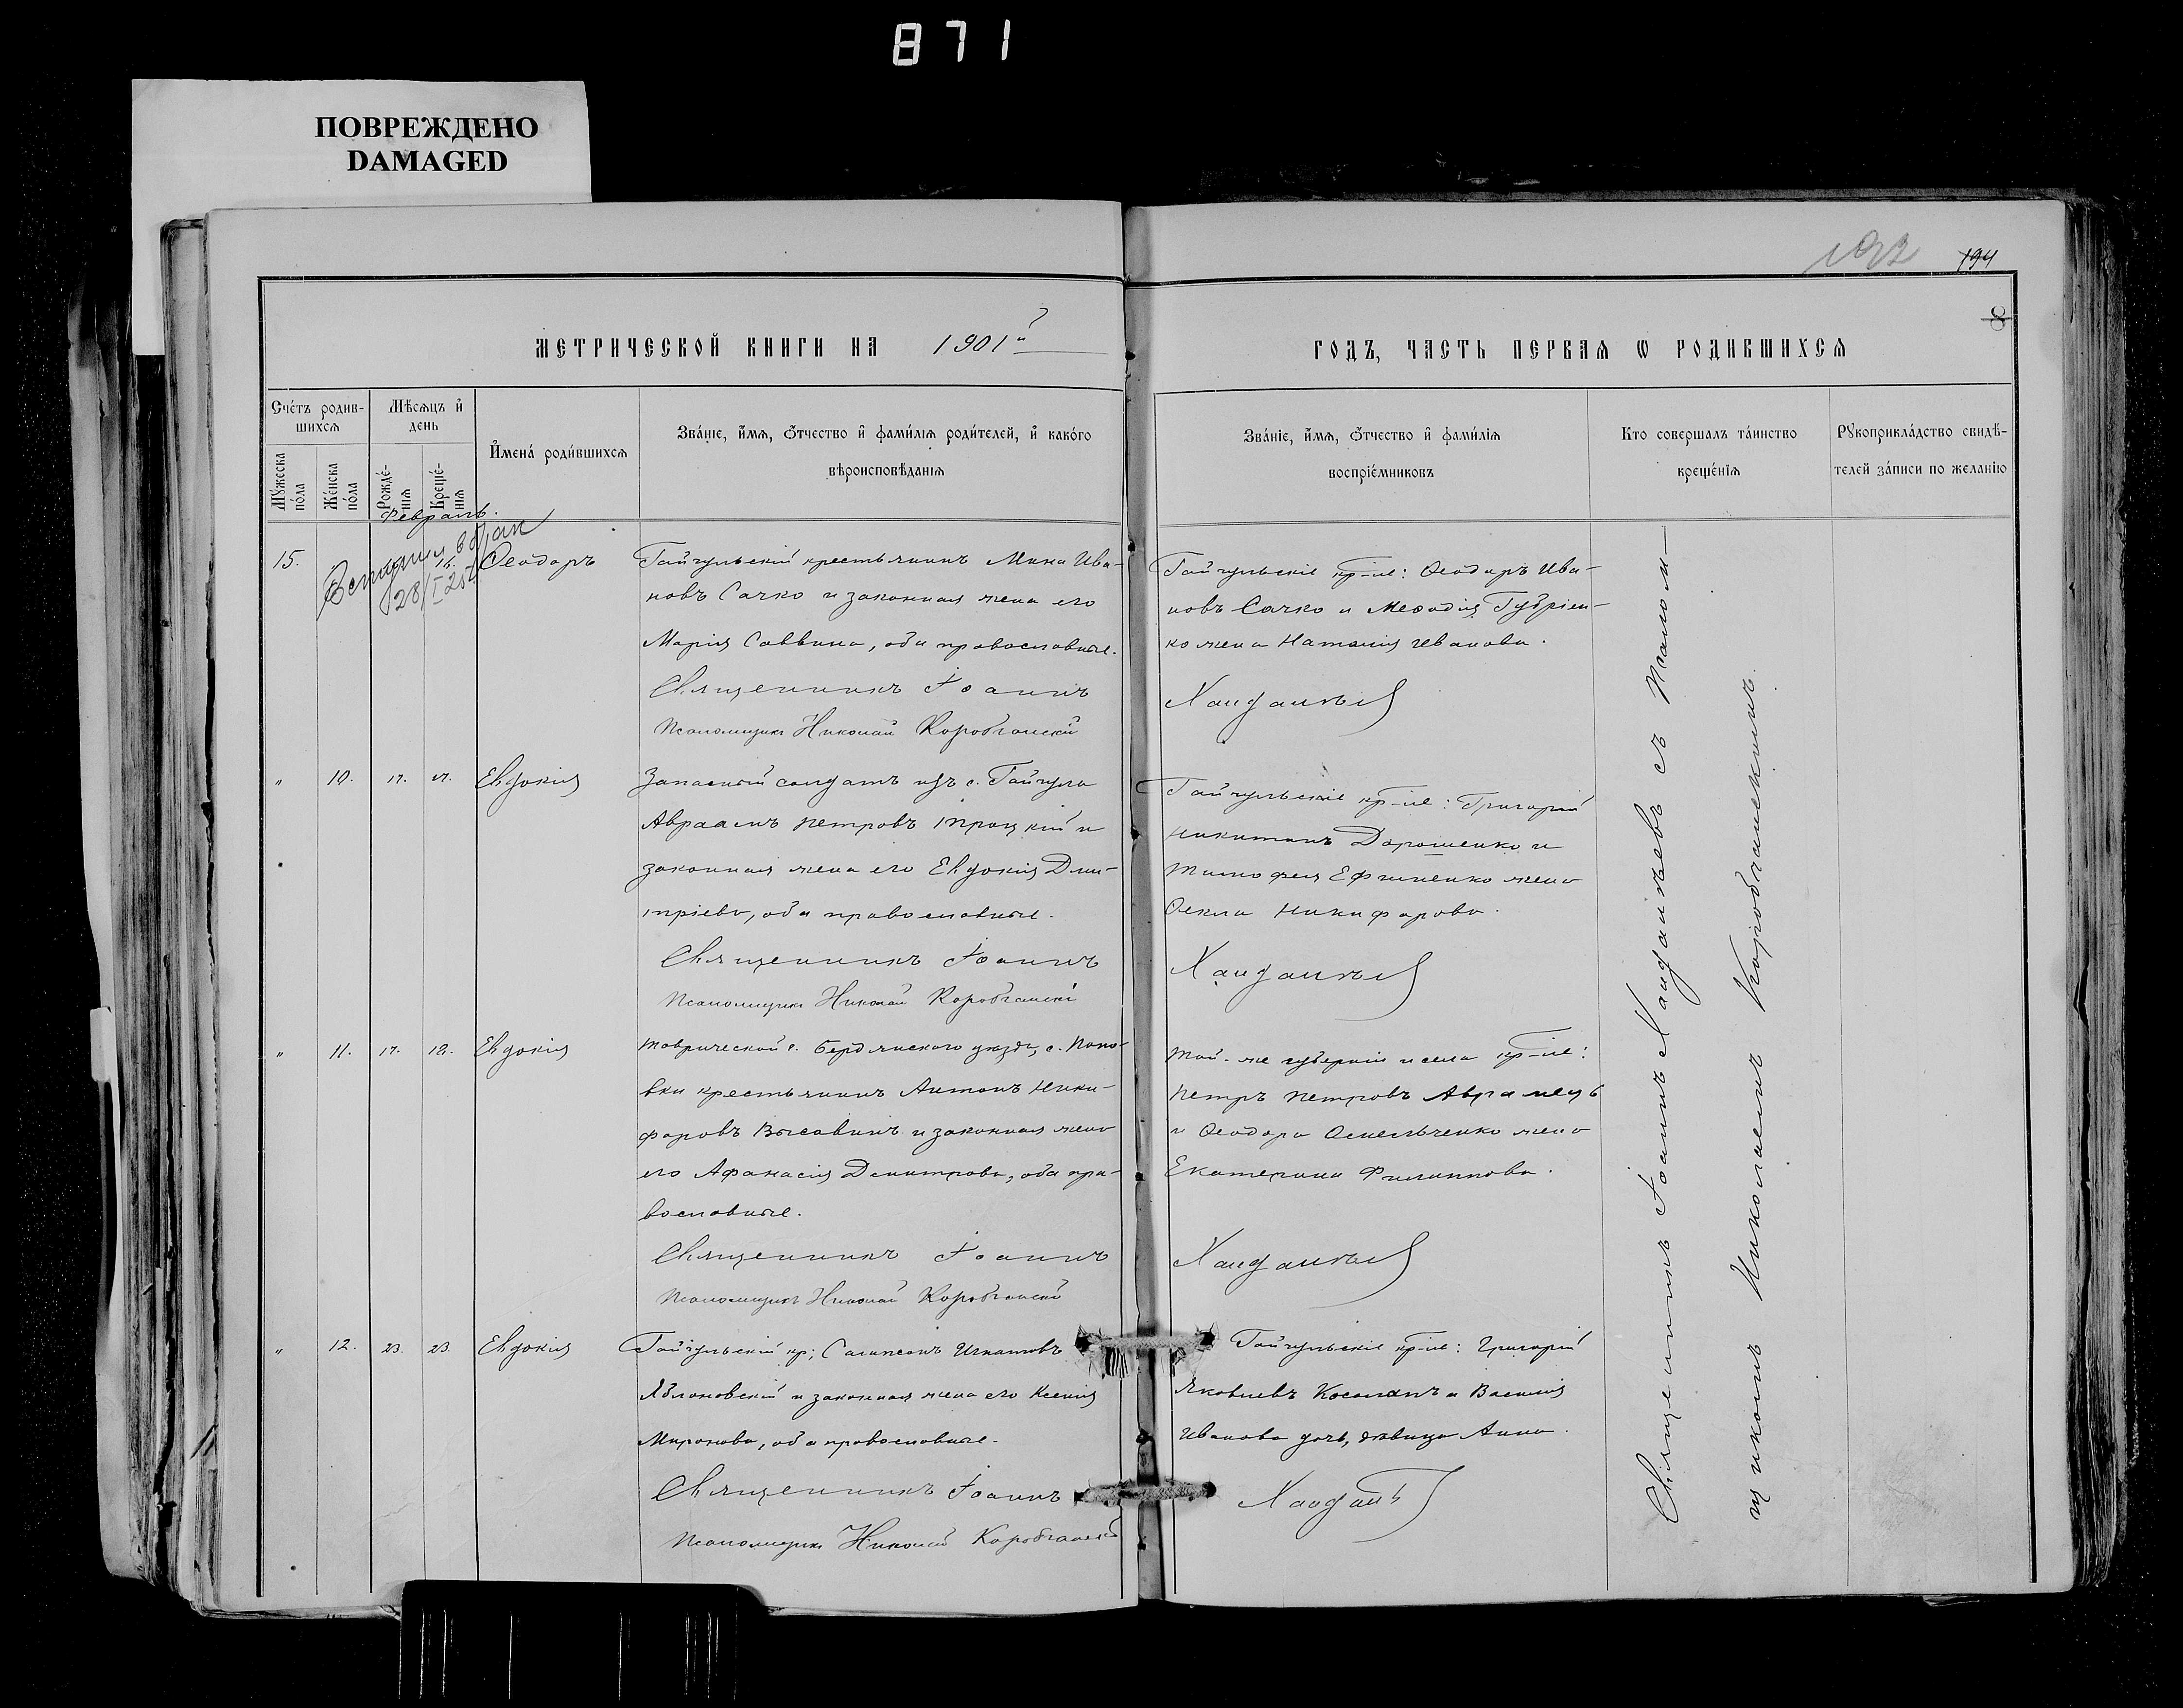 871
ПОВРЕЖДЕНО
DAMAGED
192 194
8
МЕТРИЧЕСКОЙ КНИГИ НА 1901й
ГОДЪ, ЧАСТЬ ПЕРВАЯ Ѡ РОДИВШИХСЯ
Счétъ родив-
шихсѧ
Мꙋжеска пóла
Жéнска пóла
Мѣсѧцъ и҆ день
Рождé-
нїѧ
Крещé-
нїѧ
И҆мена̀ роди́вшихсѧ
Звáнїе, и҆́мѧ, ѻ҆́тчество и҆ фами́лїѧ роди́телей, и҆ какóго
вѣроисповѣ́данїѧ
Звáнїе, и҆́мѧ, ѻ҆́тчество и҆ фами́лїѧ
воспрїéмниковъ
Кто совершалъ тáинство
крещéнїѧ
Рꙋкоприклáдство свидѣ́-
телей зáписи по желáнїю
Февраль.
28/I 25
15. Ѳеодоръ
Гайчульскій крестьянинъ Мина Ива-
новъ Сачко и законная жена его
Марія Саввина, оба православные.
Священникъ Іоаннъ
Псаломщикъ Николай Коробчанскій
Гайчульскіе кр-не: Ѳеодоръ Ива-
новъ Сачко и Меѳодія Губріен-
ко жена Наталія Иванова.
Ханданѣев
" 10. 17. 17. Евдокия
Запасный солдатъ изъ с. Гайчула
Авраамъ Петровъ Троцкій и
законная жена его Евдокія Дми-
тріева, оба православные.
Священникъ Іоаннъ
Псаломщикъ Николай Коробчанскій
Гайчульскіе кр-не: Григорій
Никитинъ Дорошенко и
Тимофея Ефименко жена
Ѳекла Никифорова.
Ханданѣев
" 11. 17. 18. Евдокія
Таврической г. Бердянскаго уѣзда, с. Попо-
вки крестьянинъ Антонъ Ники-
форовъ Высавинъ и законная жена
его Афанасія Димитрова, оба пра-
вославные.
Священникъ Іоаннъ
Псаломщикъ Николай Коробчанскій
Той-же губерніи и села кр-не:
Петръ Петровъ Авраменъ
и Ѳеодора Омельченко жена
Екатерина Филиппова.
Ханданѣев
" 12. 23. 23. Евдокія
Гайчульскій кр; Сампсонъ Игнатовъ
Яблоновскій и законная жена его Ксенія
Миронова, оба православные.
Священникъ Іоаннъ
Псаломщикъ Николай Коробчанскій
Гайчульскіе кр-не: Григорій
Яковлевъ Косолапъ и Василія
Иванова дочь, дѣвица Анна.
Священникъ Іоаннъ Ханданѣевъ съ Псалом-
щикомъ Николаемъ Коробчанскимъ.